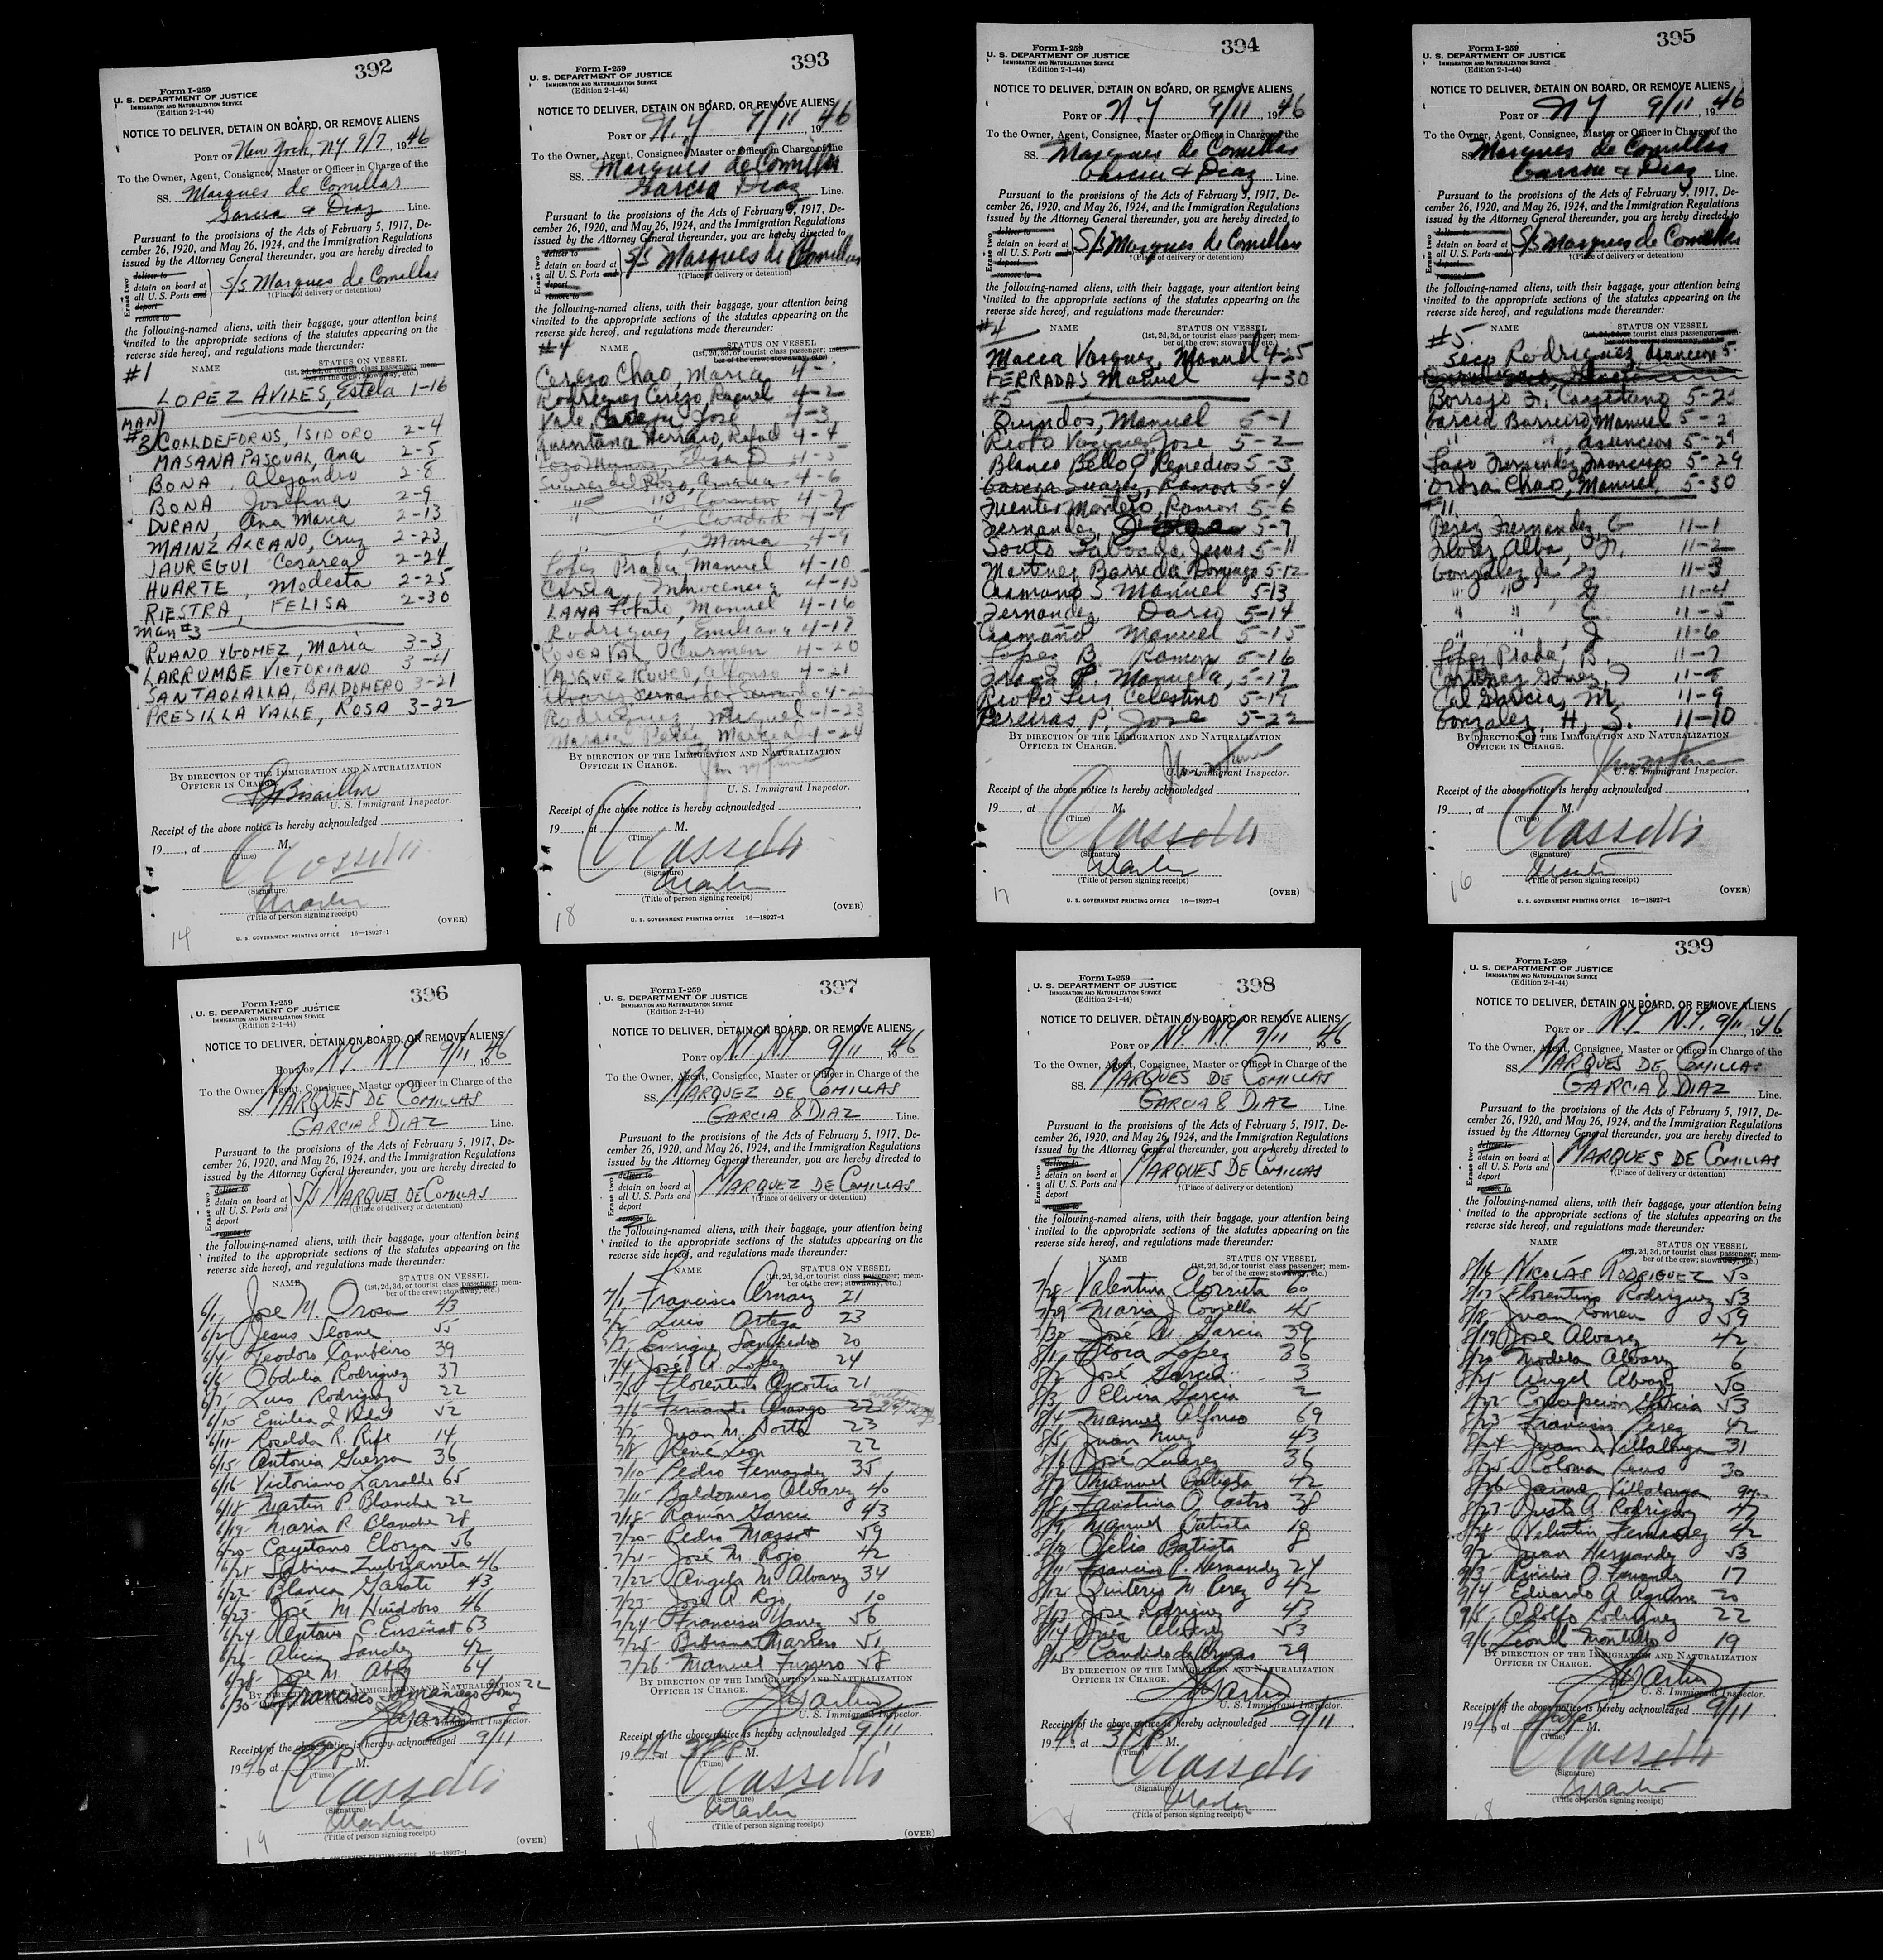 392
Form I-259
U. S. DEPARTMENT OF JUSTICE
IMMIGRATION AND NATURALIZATION SERVICE
(Edition 2-1-44)
NOTICE TO DELIVER, DETAIN ON BOARD, OR REMOVE ALIENS
PORT OF New York, NY 9/7 1946
To the Owner, Agent, Consignee, Master or Officer in Charge of the
SS. Marques de Comillas
Garcia & Diaz Line.
Pursuant to the provisions of the Acts of February 5, 1917, De-
cember 26, 1920, and May 26, 1924, and the Immigration Regulations
issued by the Attorney General thereunder, you are hereby directed to
Erase two
deliver to
detain on board at
all U. S. Ports and
deport
remove to
S/S Marques de Comillas
†(Place of delivery or detention)
the following-named aliens, with their baggage, your attention being
invited to the appropriate sections of the statutes appearing on the
reverse side hereof, and regulations made thereunder:
#1 NAME STATUS ON VESSEL
(1st, 2d, 3d, or tourist class passenger; mem-
ber of the crew; stowaway, etc.)
LOPEZ AVILES, Estela 1-16
MAN
#2 COLLDEFORNS, ISIDORO 2-4
MASANA PASCUAL, Ana 2-5
BONA Alejandro 2-8
BONA Josefina 2-9
DURAN, Ana Maria 2-13
MAINZ ALCANO, Cruz 2-23
JAUREGUI Cesareal 2-24
HUARTE, Modesta 2-25
RIESTRA, FELISA 2-30
Man #3
RUANO Y GOMEZ, Maria 3-3
LARRUMBE VICTORIANO 3-4
SANTAOLALLA, BALDOMERO 3-21
PRESILLA VALLE, ROSA 3-22
BY DIRECTION OF THE IMMIGRATION AND NATURALIZATION
OFFICER IN CHARGE.
U. S. Immigrant Inspector.
Receipt of the above notice is hereby acknowledged
19 , at M.
(Time)
(Signature)
(Title of person signing receipt)
(OVER)
14
U. S. GOVERNMENT PRINTING OFFICE 16—18927-1
393
Form I-259
U. S. DEPARTMENT OF JUSTICE
IMMIGRATION AND NATURALIZATION SERVICE
(Edition 2-1-44)
NOTICE TO DELIVER, DETAIN ON BOARD, OR REMOVE ALIENS
PORT OF N.Y 9/11 1946
To the Owner, Agent, Consignee, Master or Officer in Charge of the
SS. Marques de Comillas
Garcia Diaz Line.
Pursuant to the provisions of the Acts of February 5, 1917, De-
cember 26, 1920, and May 26, 1924, and the Immigration Regulations
issued by the Attorney General thereunder, you are hereby directed to
Erase two
deliver to
detain on board at
all U. S. Ports and
deport
remove to
S/S Marques de Comillas
†(Place of delivery or detention)
the following-named aliens, with their baggage, your attention being
invited to the appropriate sections of the statutes appearing on the
reverse side hereof, and regulations made thereunder:
#4 NAME STATUS ON VESSEL
(1st, 2d, 3d, or tourist class passenger; mem-
ber of the crew; stowaway, etc.)
Cerezo Chao, Maria 4-
Rodriguez Cerezo, Raquel 4-2
Vale, Jose 4-3
Quintana Herrero, Rafael 4-4
4-5
Suarez del Pozo, Amalia 4-6
" " Carmen 4-7
" " Caridad 4-8
, Maria 4-9
Lopez Prada, Manuel 4-10
Innocencia 4-15
LANA Manuel 4-16
Rodriguez, Emiliana 4-17
Carmen 4-20
VASQUEZ Alfonso 4-21
Alvarez Fernandez 4-22
Rodriguez, Miguel 4-23
Perez Marcial 4-24
BY DIRECTION OF THE IMMIGRATION AND NATURALIZATION
OFFICER IN CHARGE.
U. S. Immigrant Inspector.
Receipt of the above notice is hereby acknowledged
19 , at M.
(Time)
(Signature)
(Title of person signing receipt)
(OVER)
18
U. S. GOVERNMENT PRINTING OFFICE 16—18927-1
394
Form I-259
U. S. DEPARTMENT OF JUSTICE
IMMIGRATION AND NATURALIZATION SERVICE
(Edition 2-1-44)
NOTICE TO DELIVER, DETAIN ON BOARD, OR REMOVE ALIENS
PORT OF N.Y 9/11 1946
To the Owner, Agent, Consignee, Master or Officer in Charge of the
SS. Marques de Comillas
Garcia & Diaz Line.
Pursuant to the provisions of the Acts of February 5, 1917, De-
cember 26, 1920, and May 26, 1924, and the Immigration Regulations
issued by the Attorney General thereunder, you are hereby directed to
Erase two
deliver to
detain on board at
all U. S. Ports and
deport
remove to
S/S Marques de Comillas
†(Place of delivery or detention)
the following-named aliens, with their baggage, your attention being
invited to the appropriate sections of the statutes appearing on the
reverse side hereof, and regulations made thereunder:
#4 NAME STATUS ON VESSEL
(1st, 2d, 3d, or tourist class passenger; mem-
ber of the crew; stowaway, etc.)
Macia Vasquez, Manuel 4-25
FERRADAS Manuel 4-30
#5
Quindos, Manuel 5-1
Riopo Vazquez, Jose 5-2
Blanco Bello, Remedios 5-3
Garcia Suarez, Ramon 5-4
Fuentes Montero, Ramon 5-6
Fernandez, 5-7
Souto Taboada, Jesus 5-11
Martinez Barreda Domingo 5-12
Caamano S Manuel 5-13
Fernandez Dario 5-14
Caamaño Manuel 5-15
Lopez B Ramon 5-16
P. Manuela, 5-17
Celestino 5-19
Pereiras, P. Jose 5-22
BY DIRECTION OF THE IMMIGRATION AND NATURALIZATION
OFFICER IN CHARGE.
U. S. Immigrant Inspector.
Receipt of the above notice is hereby acknowledged
19 , at M.
(Time)
(Signature)
(Title of person signing receipt)
(OVER)
17
U. S. GOVERNMENT PRINTING OFFICE 16—18927-1
395
Form I-259
U. S. DEPARTMENT OF JUSTICE
IMMIGRATION AND NATURALIZATION SERVICE
(Edition 2-1-44)
NOTICE TO DELIVER, DETAIN ON BOARD, OR REMOVE ALIENS
PORT OF N.Y 9/11 1946
To the Owner, Agent, Consignee, Master or Officer in Charge of the
SS. Marques de Comillas
Garcia & Diaz Line.
Pursuant to the provisions of the Acts of February 5, 1917, De-
cember 26, 1920, and May 26, 1924, and the Immigration Regulations
issued by the Attorney General thereunder, you are hereby directed to
deliver to
detain on board at
all U. S. Ports and
deport
remove to
S/S Marques de Comillas
†(Place of delivery or detention)
the following-named aliens, with their baggage, your attention being
invited to the appropriate sections of the statutes appearing on the
reverse side hereof, and regulations made thereunder:
#5 NAME STATUS ON VESSEL
(1st, 2d, 3d, or tourist class passenger; mem-
ber of the crew; stowaway, etc.)
Seco Rodriguez, Asuncion 5
Borrajo Cayetano 5-2
Garcia Barreiro, Manuel 5-2
" ", Asuncion 5-29
Fernandez Francisco 5-29
Orosa Chao, Manuel 5-30
#11
Perez Fernandez, G 11-1
Flores Alba, 11-2
Gonzalez 11-3
" " 11-4
" " C. 11-5
" " J 11-6
Lopez Prada, B. 11-7
Gomez, J 11-8
Cal Garcia, M. 11-9
Gonzalez, H, S. 11-10
BY DIRECTION OF THE IMMIGRATION AND NATURALIZATION
OFFICER IN CHARGE.
U. S. Immigrant Inspector.
Receipt of the above notice is hereby acknowledged
19 , at M.
(Time)
(Signature)
(Title of person signing receipt)
(OVER)
16
U. S. GOVERNMENT PRINTING OFFICE 16—18927-1
396
Form I-259
U. S. DEPARTMENT OF JUSTICE
IMMIGRATION AND NATURALIZATION SERVICE
(Edition 2-1-44)
NOTICE TO DELIVER, DETAIN ON BOARD, OR REMOVE ALIENS
PORT OF N.Y. N.Y 9/11 1946
To the Owner, Agent, Consignee, Master or Officer in Charge of the
SS. MARQUES DE COMILLAS
GARCIA & DIAZ Line.
Pursuant to the provisions of the Acts of February 5, 1917, De-
cember 26, 1920, and May 26, 1924, and the Immigration Regulations
issued by the Attorney General thereunder, you are hereby directed to
Erase two
deliver to
detain on board at
all U. S. Ports and
deport
remove to
S/S MARQUES DE COMILLAS
†(Place of delivery or detention)
the following-named aliens, with their baggage, your attention being
invited to the appropriate sections of the statutes appearing on the
reverse side hereof, and regulations made thereunder:
NAME STATUS ON VESSEL
(1st, 2d, 3d, or tourist class passenger; mem-
ber of the crew; stowaway, etc.)
6/1 Jose M. Orosa 43
6/2 Jesus Sloane 55
6/4 Teodoro Cambeiro 39
6/6 Obdulia Rodriguez 37
6/7 Luis Rodriguez 22
6/10 Emilia L Vidal 52
6/11 Roselda R. Rife 14
6/15 Antonia Guerra 36
6/16 Victoriano Larralde 65
6/18 Martin P. Blanche 22
6/19 Maria P. Blanche 28
6/20 Cayetano Elorza 56
6/21 Sabina Zubigarreta 46
6/22 Blanca Garate 43
6/23 José M Huidobro 46
6/24 Antonio C Ensenat 63
6/26 Alicia Sanchez 42
6/28 Jose M. 64
6/30 Francisco Samaniego Gomez 22
BY DIRECTION OF THE IMMIGRATION AND NATURALIZATION
OFFICER IN CHARGE.
U. S. Immigrant Inspector.
Receipt of the above notice is hereby acknowledged 9/11
1946 at M.
(Time)
(Signature)
(Title of person signing receipt)
(OVER)
19
U. S. GOVERNMENT PRINTING OFFICE 16—18927-1
397
Form I-259
U. S. DEPARTMENT OF JUSTICE
IMMIGRATION AND NATURALIZATION SERVICE
(Edition 2-1-44)
NOTICE TO DELIVER, DETAIN ON BOARD, OR REMOVE ALIENS
PORT OF N.Y, N.Y 9/11, 1946
To the Owner, Agent, Consignee, Master or Officer in Charge of the
SS. MARQUEZ DE COMILLAS
GARCIA & DIAZ Line.
Pursuant to the provisions of the Acts of February 5, 1917, De-
cember 26, 1920, and May 26, 1924, and the Immigration Regulations
issued by the Attorney General thereunder, you are hereby directed to
Erase two
deliver to
detain on board at
all U. S. Ports and
deport
remove to
MARQUEZ DE COMILLAS
†(Place of delivery or detention)
the following-named aliens, with their baggage, your attention being
invited to the appropriate sections of the statutes appearing on the
reverse side hereof, and regulations made thereunder:
NAME STATUS ON VESSEL
(1st, 2d, 3d, or tourist class passenger; mem-
ber of the crew; stowaway, etc.)
7/1 Francisco Arnaiz 21
7/2 Luis Ortega 23
7/3 Enrique Sampedro 20
7/4 José A Lopez 24
7/5 Florentino Ascorta 21
7/6 Fernando Arango 22
7/7 Juan M. Sorto 23
7/8 René Leon 22
7/10 Pedro Fernandez 35
7/11 Baldomero Alvarez 40
7/18 Ramon Garcia 43
7/20 Pedro Massot 59
7/21 José M. Rojo 42
7/22 Angela M. Alvarez 34
7/23 José A Rojo 10
7/24 Francisco Yanez 56
7/25 Bibiana Marrero 51
7/26 Manuel Furrero 58
BY DIRECTION OF THE IMMIGRATION AND NATURALIZATION
OFFICER IN CHARGE.
U. S. Immigrant Inspector.
Receipt of the above notice is hereby acknowledged 9/11
1946, at P M.
(Time)
(Signature)
(Title of person signing receipt)
(OVER)
18
398
Form I-259
U. S. DEPARTMENT OF JUSTICE
IMMIGRATION AND NATURALIZATION SERVICE
(Edition 2-1-44)
NOTICE TO DELIVER, DETAIN ON BOARD, OR REMOVE ALIENS
PORT OF N.Y N.Y 9/11 1946
To the Owner, Agent, Consignee, Master or Officer in Charge of the
SS. MARQUES DE COMILLAS
GARCIA & DIAZ Line.
Pursuant to the provisions of the Acts of February 5, 1917, De-
cember 26, 1920, and May 26, 1924, and the Immigration Regulations
issued by the Attorney General thereunder, you are hereby directed to
Erase two
deliver to
detain on board at
all U. S. Ports and
deport
remove to
MARQUES DE COMILLAS
†(Place of delivery or detention)
the following-named aliens, with their baggage, your attention being
invited to the appropriate sections of the statutes appearing on the
reverse side hereof, and regulations made thereunder:
NAME STATUS ON VESSEL
(1st, 2d, 3d, or tourist class passenger; mem-
ber of the crew; stowaway, etc.)
7/28 Valentina Elorrieta 60
7/29 Maria J Coviella 45
7/30 José M. Garcia 39
8/1 Flora Lopez 36
8/2 José Garcia 3
8/3 Elvira Garcia 2
8/4 Manuel Alfonso 69
8/5 Juan Nuez 43
8/6 José Lubrez 36
8/7 Manuel Batista 42
8/8 Faustina O. Castro 38
8/9 Manuel Batista 10
8/10 Delio Batista 8
8/11 Francisco P. Hernandez 24
8/12 Quiterio M. Perez 42
8/13 Jose Rodriguez 43
8/14 Ines Alvarez 53
8/15 Candido de Armas 29
BY DIRECTION OF THE IMMIGRATION AND NATURALIZATION
OFFICER IN CHARGE.
U. S. Immigrant Inspector.
Receipt of the above notice is hereby acknowledged 9/11
1946, at 3 P M.
(Time)
(Signature)
(Title of person signing receipt)
8
399
Form I-259
U. S. DEPARTMENT OF JUSTICE
IMMIGRATION AND NATURALIZATION SERVICE
(Edition 2-1-44)
NOTICE TO DELIVER, DETAIN ON BOARD, OR REMOVE ALIENS
PORT OF N.Y. N.Y. 9/11 1946
To the Owner, Agent, Consignee, Master or Officer in Charge of the
SS. MARQUES DE COMILLAS
GARCIA & DIAZ Line.
Pursuant to the provisions of the Acts of February 5, 1917, De-
cember 26, 1920, and May 26, 1924, and the Immigration Regulations
issued by the Attorney General thereunder, you are hereby directed to
Erase two
deliver to
detain on board at
all U. S. Ports and
deport
remove to
MARQUES DE COMILLAS
†(Place of delivery or detention)
the following-named aliens, with their baggage, your attention being
invited to the appropriate sections of the statutes appearing on the
reverse side hereof, and regulations made thereunder:
NAME STATUS ON VESSEL
(1st, 2d, 3d, or tourist class passenger; mem-
ber of the crew; stowaway, etc.)
8/16 NICOLÁS RODRIGUEZ 50
8/17 Florentino Rodriguez 53
8/18 Juan Romeu 59
8/19 José Alvarez 42
8/20 Modela Alvarez 6
8/21 Angel Alvarez 50
8/22 Concepcion Garcia 53
8/23 Francisco Perez 42
8/24 Juan J Villalonga 31
8/25 Coloma 30
8/26 Jaime Villalonga
8/27 Justo A Rodriguez 47
8/28 Valentin Fernandez 42
9/2 Juan Hernandez 53
9/3 Emilio O Fernandez 17
9/4 Eduardo A 20
9/5 Adolfo Rodriguez 22
9/6 Leonel Montello 19
BY DIRECTION OF THE IMMIGRATION AND NATURALIZATION
OFFICER IN CHARGE.
U. S. Immigrant Inspector.
Receipt of the above notice is hereby acknowledged 9/11
1946 at M.
(Time)
(Signature)
(Title of person signing receipt)
8